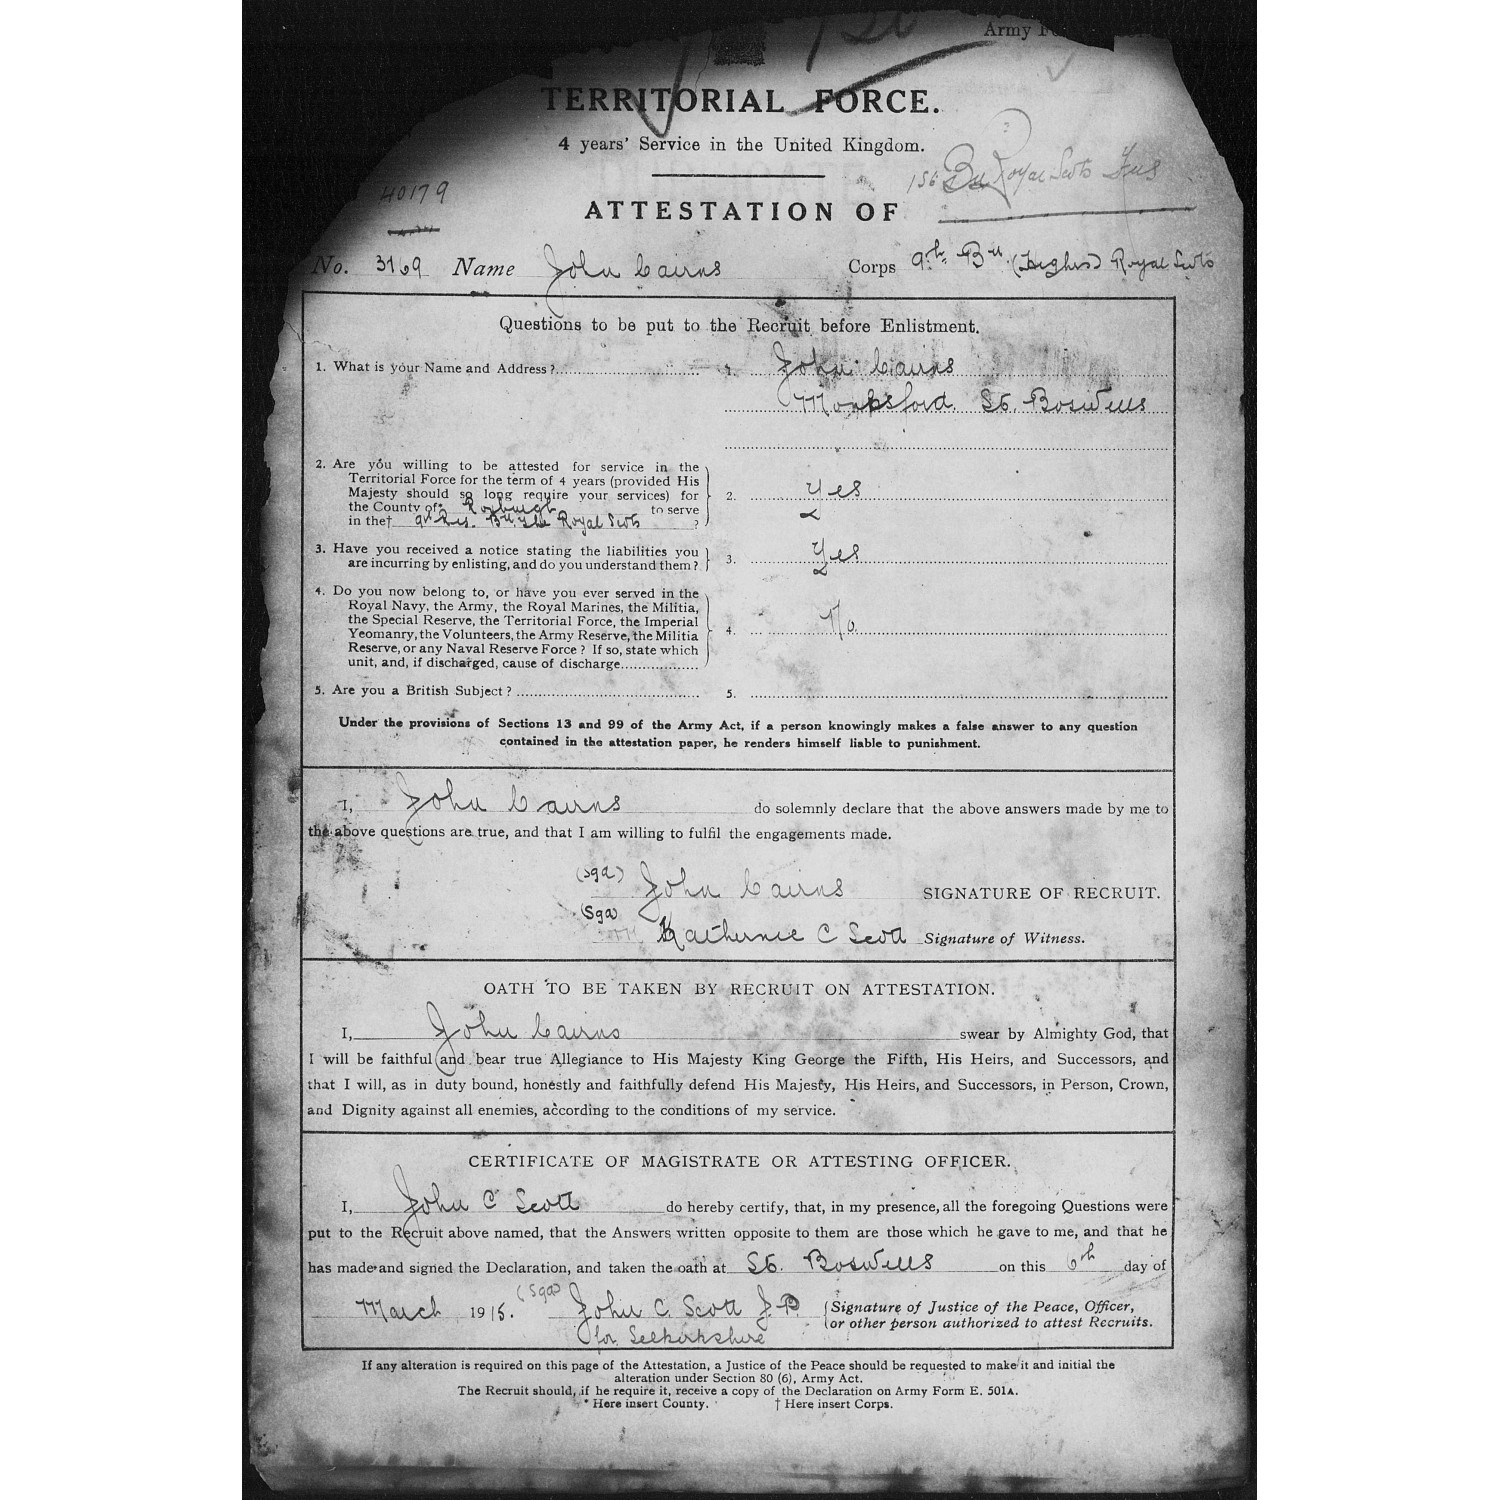 Army
TERRITORIAL FORCE.
4 years' Service in the United Kingdom.
40179
156 Bn Royal Scots Fus
ATTESTATION OF
No. 3769 Name John Cairns Corps 9th Bn (Highrs) Royal Scots
Questions to be put to the Recruit before Enlistment.
1. What is your Name and Address? 1. John Cairns
Monksford St. Boswells
2. Are you willing to be attested for service in the
Territorial Force for the term of 4 years (provided His
Majesty should so long require your services) for 2. Yes
the County of* Roxburgh to serve
in the† 9th Res. Bn. The Royal Scots ?
3. Have you received a notice stating the liabilities you 3. Yes
are incurring by enlisting, and do you understand them?
4. Do you now belong to, or have you ever served in the
Royal Navy, the Army, the Royal Marines, the Militia,
the Special Reserve, the Territorial Force, the Imperial
Yeomanry, the Volunteers, the Army Reserve, the Militia 4. No.
Reserve, or any Naval Reserve Force? If so, state which
unit, and, if discharged, cause of discharge
5. Are you a British Subject? 5.
Under the provisions of Sections 13 and 99 of the Army Act, if a person knowingly makes a false answer to any question
contained in the attestation paper, he renders himself liable to punishment.
I, John Cairns do solemnly declare that the above answers made by me to
the above questions are true, and that I am willing to fulfil the engagements made.
(Sgd) John Cairns SIGNATURE OF RECRUIT.
(Sgd) Katherine C Scott Signature of Witness.
OATH TO BE TAKEN BY RECRUIT ON ATTESTATION.
I, John Cairns swear by Almighty God, that
I will be faithful and bear true Allegiance to His Majesty King George the Fifth, His Heirs, and Successors, and
that I will, as in duty bound, honestly and faithfully defend His Majesty, His Heirs, and Successors, in Person, Crown,
and Dignity against all enemies, according to the conditions of my service.
CERTIFICATE OF MAGISTRATE OR ATTESTING OFFICER.
I, John C Scott do hereby certify, that, in my presence, all the foregoing Questions were
put to the Recruit above named, that the Answers written opposite to them are those which he gave to me, and that he
has made and signed the Declaration, and taken the oath at St. Boswells on this 6th day of
March 1915. (Sgd) John C. Scott J.P. Signature of Justice of the Peace, Officer,
for Selkirkshire or other person authorized to attest Recruits.
If any alteration is required on this page of the Attestation, a Justice of the Peace should be requested to make it and initial the
alteration under Section 80 (6), Army Act.
The Recruit should, if he require it, receive a copy of the Declaration on Army Form E. 501A.
* Here insert County. † Here insert Corps.